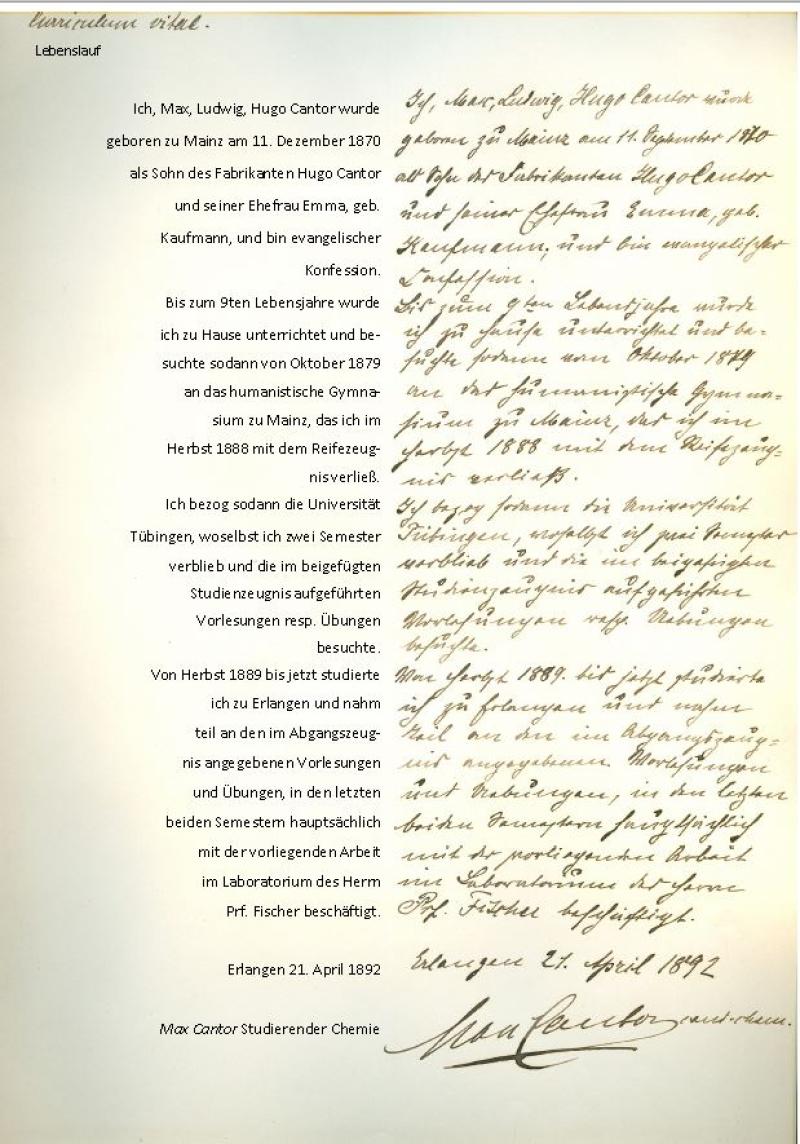 Curriculum vitae.
Lebenslauf
Ich, Max, Ludwig, Hugo Cantor wurde
geboren zu Mainz am 11. Dezember 1870
als Sohn des Fabrikanten Hugo Cantor
und seiner Ehefrau Emma, geb.
Kaufmann, und bin evangelischer
Konfession.
Bis zum 9ten Lebensjahre wurde
ich zu Hause unterrichtet und be-
suchte sodann von Oktober 1879
an das humanistische Gymna-
sium zu Mainz, das ich im
Herbst 1888 mit dem Reifezeug-
nis verließ.
Ich bezog sodann die Universität
Tübingen, woselbst ich zwei Semester
verblieb und die im beigefügten
Studienzeugnis aufgeführten
Vorlesungen resp. Übungen
besuchte.
Von Herbst 1889 bis jetzt studierte
ich zu Erlangen und nahm
teil an den im Abgangszeug-
nis angegebenen Vorlesungen
und Übungen, in den letzten
beiden Semestern hauptsächlich
mit der vorliegenden Arbeit
im Laboratorium des Herrn
Prf. Fischer beschäftigt.
Erlangen 21. April 1892
Max Cantor Studierender Chemie
Ich, Max, Ludwig, Hugo Cantor wurde
geboren zu Mainz am 11. September 1870
als Sohn des Fabrikanten Hugo Cantor
und seiner Ehefrau Emma, geb.
Kaufmann, und bin evangelischer
Confession.
Bis zum 9ten Lebensjahre wurde
ich zu Hause unterrichtet und be-
suchte sodann vom Oktober 1879
an das humanistische Gymna-
sium zu Mainz, das ich im
Herbst 1888 mit dem Reifezeug-
nis verließ.
Ich bezog sodann die Universität
Tübingen, woselbst ich zwei Semester
verblieb und die im beigefügten
Studienzeugnis aufgeführten
Vorlesungen resp. Uebungen
besuchte.
Von Herbst 1889. bis jetzt studierte
ich zu Erlangen und nahm
teil an den im Abgangszeug-
nis angegebenen Vorlesungen
und Uebungen, in den letzten
beiden Semestern hauptsächlich
mit der vorliegenden Arbeit
im Laboratorium des Herrn
Prf. Fischer beschäftigt.
Erlangen 21. April 1892
Max Cantor cand. chem.